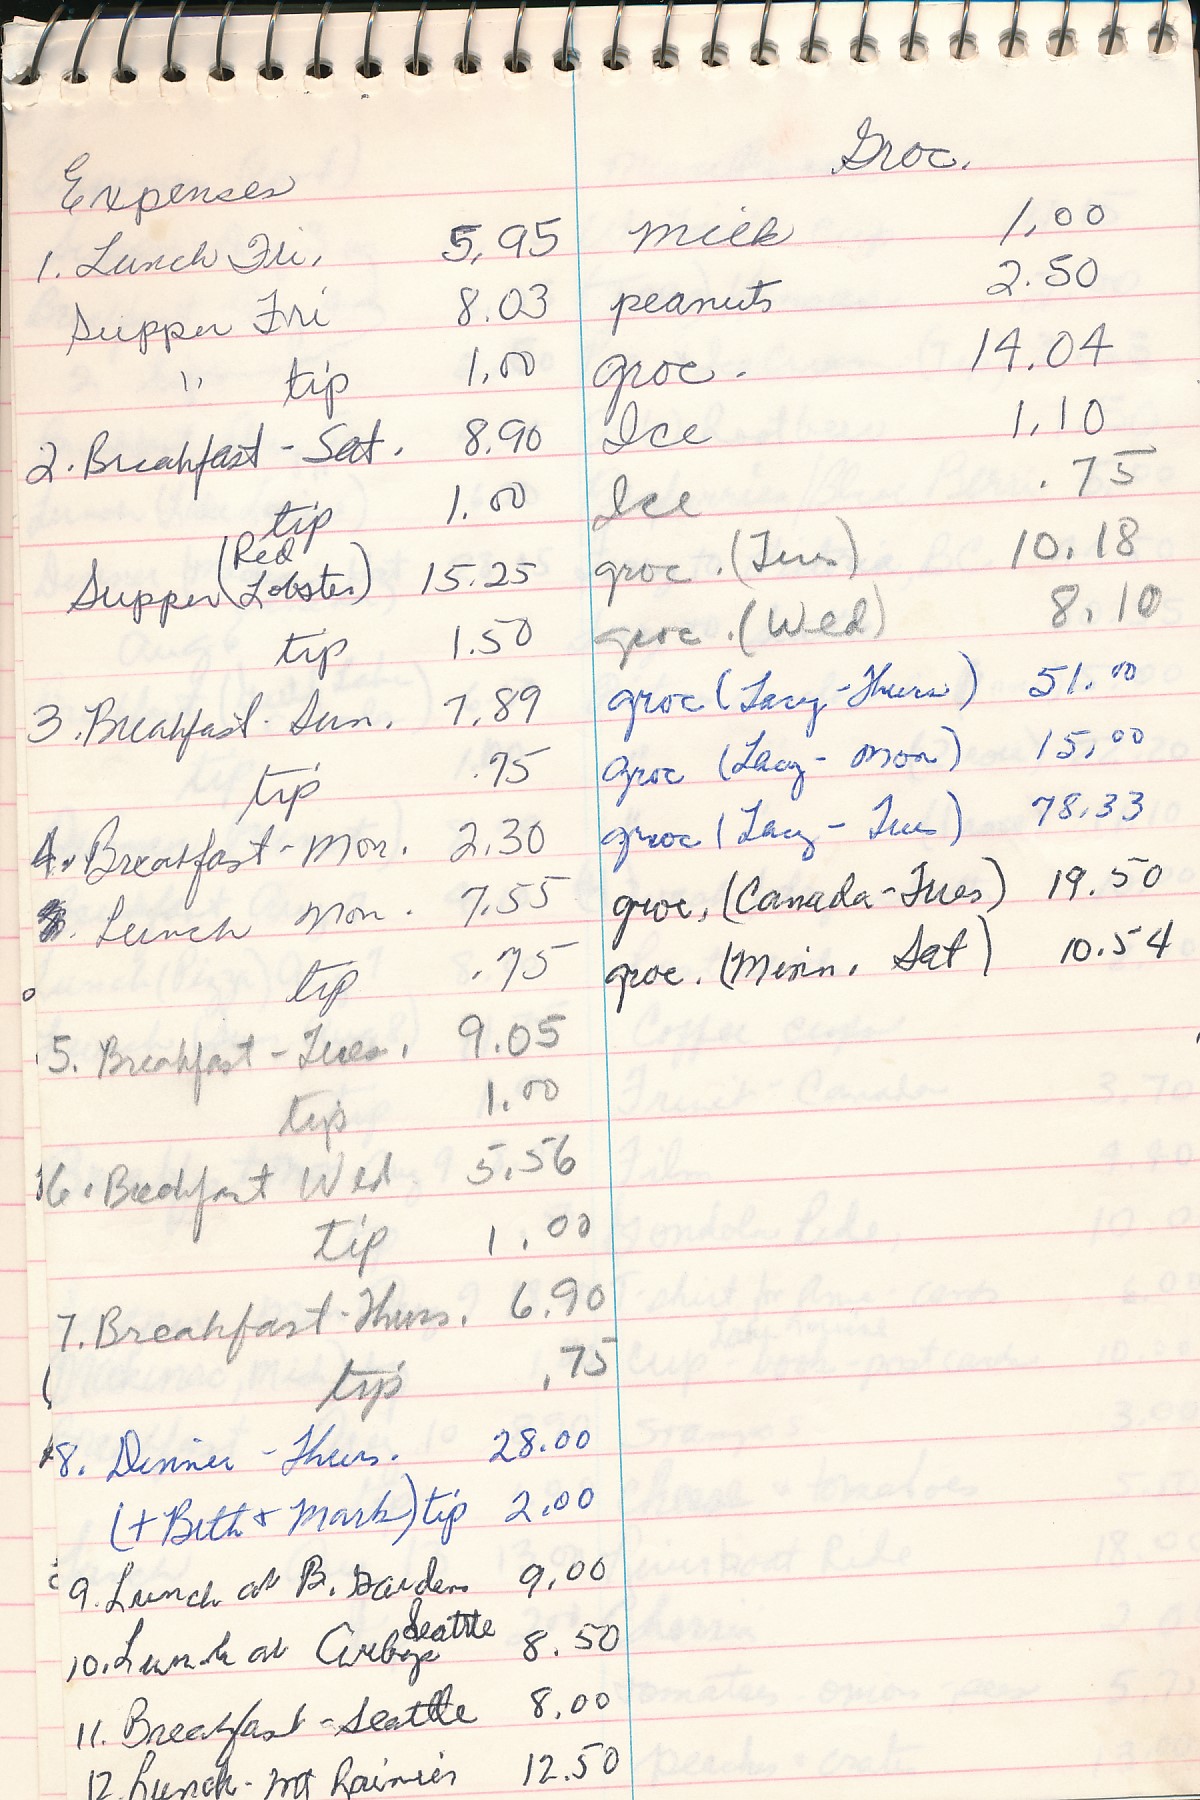 Expenses
1. Lunch Fri. 5.95
Supper Fri 8.03
" tip 1.00
2. Breakfast - Sat. 8.90
tip 1.00
Supper (Red Lobster) 15.25
tip 1.50
3. Breakfast - Sun. 7.89
tip .75
4. Breakfast - Mon. 2.30
Lunch Mon. 7.55
tip .75
5. Breakfast - Tues. 9.05
tip 1.00
6. Breakfast Wed 5.56
tip 1.00
7. Breakfast - Thurs. 6.90
tip .75
8. Dinner - Thurs. 28.00
(+ Beth + Mark) tip 2.00
9. Lunch at B. Gardens 9.00
10. Lunch at Seattle 8.50
11. Breakfast - Seattle 8.00
12. Lunch - Mt Rainier 12.50
Groc.
milk 1.00
peanuts 2.50
groc. 14.04
Ice 1.10
Ice .75
groc. (Tues) 10.18
groc. (Wed) 8.10
groc (Lacy - Thurs) 51.00
groc (Lacy - Mon) 15.00
groc (Lacy - Tues) 78.33
groc. (Canada - Tues) 19.50
groc. (Minn. Sat) 10.54